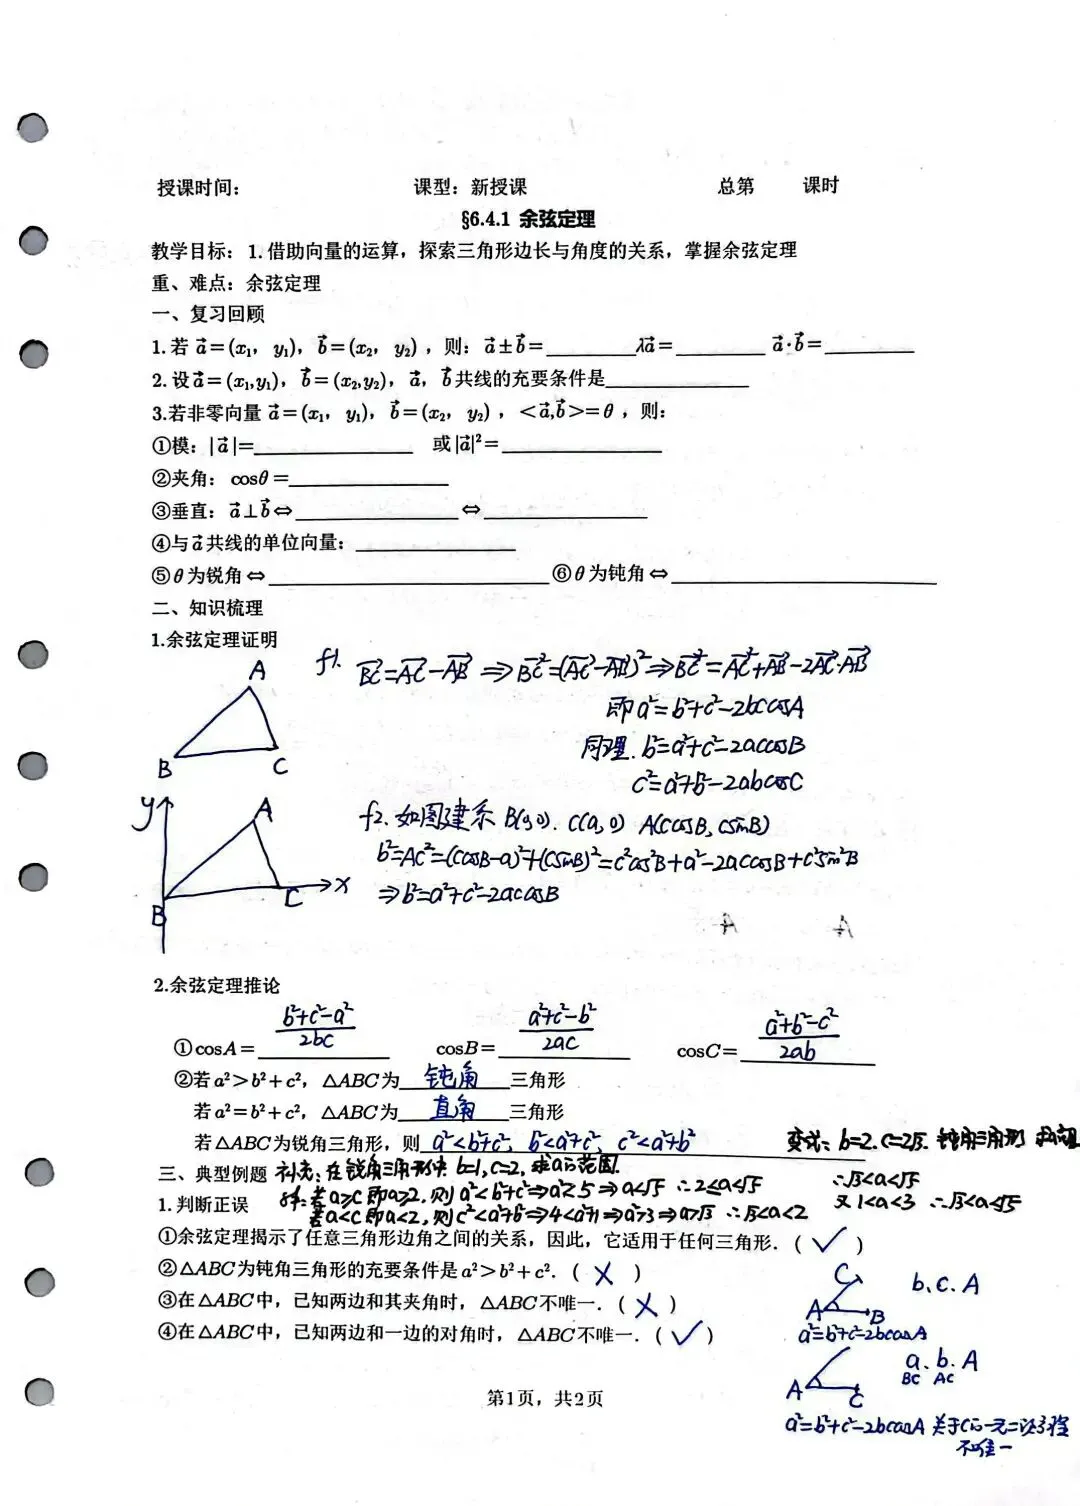 授课时间： 课型：新授课 总第 课时
§6.4.1 余弦定理
教学目标：1.借助向量的运算，探索三角形边长与角度的关系，掌握余弦定理
重、难点：余弦定理
一、复习回顾
1.若a⃗=(x₁，y₁)，b⃗=(x₂，y₂)，则：a⃗±b⃗=________λa⃗=________ a⃗·b⃗=________
2.设a⃗=(x₁,y₁)，b⃗=(x₂,y₂)，a⃗，b⃗共线的充要条件是____________
3.若非零向量a⃗=(x₁，y₁)，b⃗=(x₂，y₂)，<a⃗,b⃗>=θ，则：
①模：|a⃗|=____________ 或|a⃗|²=____________
②夹角：cosθ=____________
③垂直：a⃗⊥b⃗⇔____________⇔____________
④与a⃗共线的单位向量：____________
⑤θ为锐角⇔____________________⑥θ为钝角⇔____________________
二、知识梳理
1.余弦定理证明
A
B
C
f1. BC⃗=AC⃗-AB⃗ ⇒BC⃗²=(AC⃗-AB⃗)²⇒BC⃗²=AC⃗²+AB⃗²-2AC⃗·AB⃗
即a²=b²+c²-2bccosA
同理.b²=a²+c²-2accosB
c²=a²+b²-2abcosC
y
A
B
C
x
f2.如图建系 B(0,0). C(a,0) A(ccosB,csinB)
b²=AC²=(ccosB-a)²+(csinB)²=c²cos²B+a²-2accosB+c²sin²B
⇒b²=a²+c²-2accosB
2.余弦定理推论
①cosA=(b²+c²-a²)/2bc cosB=(a²+c²-b²)/2ac cosC=(a²+b²-c²)/2ab
②若a²>b²+c²，△ABC为钝角三角形
若a²=b²+c²，△ABC为直角三角形
若△ABC为锐角三角形，则a²<b²+c²，b²<a²+c²，c²<a²+b²
变式：b=2.c=2√3. 钝角三角形
三、典型例题 补充：在锐角三角形中 b=1,c=2,求a的范围.
解:若a≥c即a≥2.则a²<b²+c²⇒a²<5⇒a<√5 ∴2≤a<√5
若a<c即a<2,则c²<a²+b²⇒4<a²+1⇒a²>3⇒a>√3 ∴√3<a<2
∴√3<a<√5
又1<a<3 ∴√3<a<√5
1.判断正误
①余弦定理揭示了任意三角形边角之间的关系，因此，它适用于任何三角形.(√)
②△ABC为钝角三角形的充要条件是a²>b²+c².(×)
③在△ABC中，已知两边和其夹角时，△ABC不唯一.(×)
④在△ABC中，已知两边和一边的对角时，△ABC不唯一.(√)
C
A
B
b.c.A
a²=b²+c²-2bccosA
A
C
a.b.A
BC AC
a²=b²+c²-2bccosA 关于c的一元二次方程
不唯一
第1页，共2页